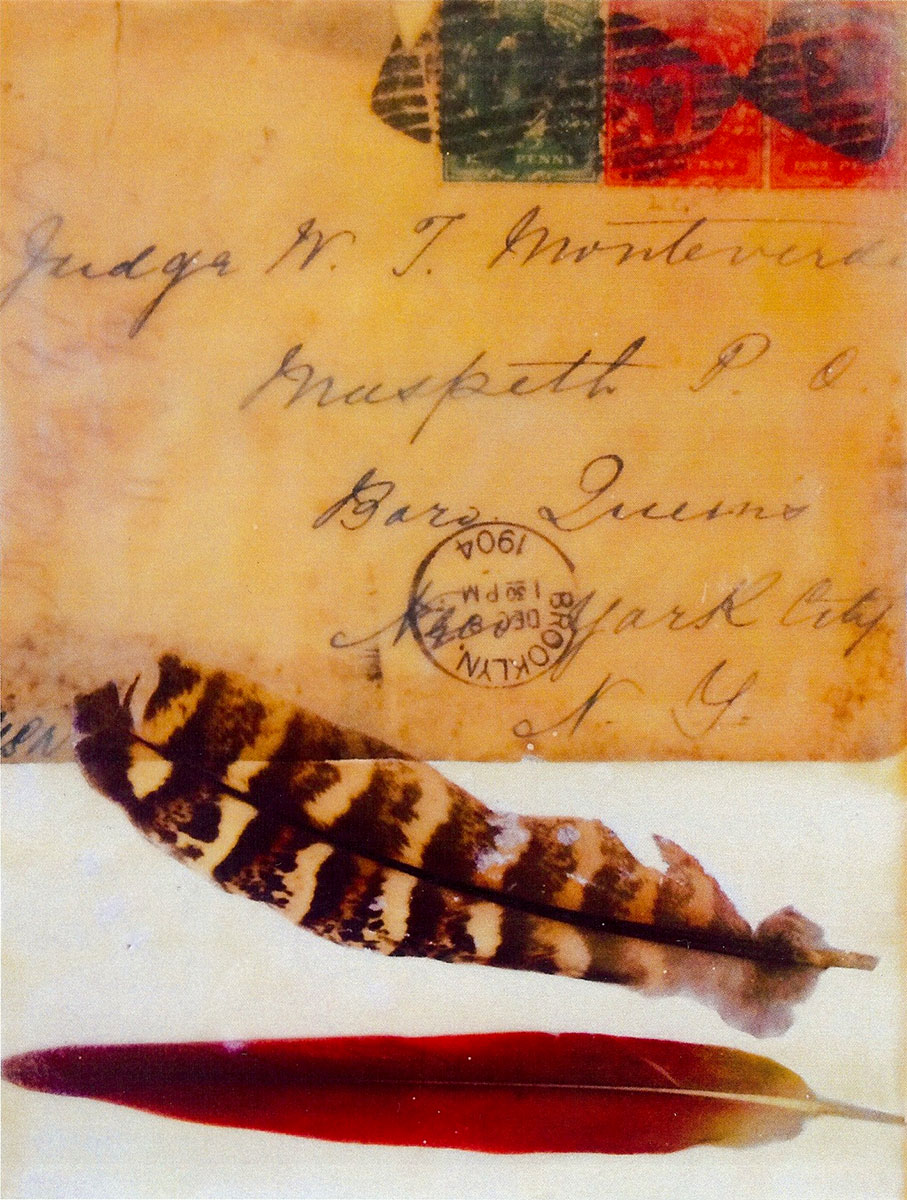 PENNY
PENNY
ONE PENNY
Judge W. T. Monteverde
Maspeth P. O.
Boro. Queens
New York City
N. Y.
BROOKLYN.
DEC
1 30 PM
1904